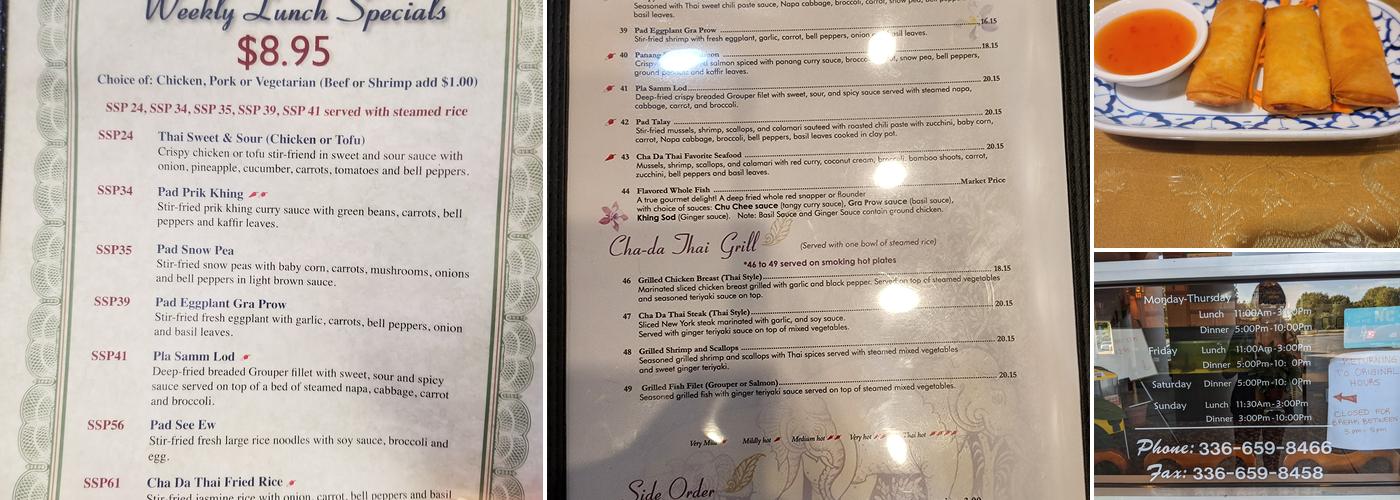 Weekly Lunch Specials
$8.95
Choice of: Chicken, Pork or Vegetarian (Beef or Shrimp add $1.00)
SSP 24, SSP 34, SSP 35, SSP 39, SSP 41 served with steamed rice
SSP24 Thai Sweet & Sour (Chicken or Tofu)
Crispy chicken or tofu stir-friend in sweet and sour sauce with
onion, pineapple, cucumber, carrots, tomatoes and bell peppers.
SSP34 Pad Prik Khing
Stir-fried prik khing curry sauce with green beans, carrots, bell
peppers and kaffir leaves.
SSP35 Pad Snow Pea
Stir-fried snow peas with baby corn, carrots, mushrooms, onions
and bell peppers in light brown sauce.
SSP39 Pad Eggplant Gra Prow
Stir-fried fresh eggplant with garlic, carrots, bell peppers, onion
and basil leaves.
SSP41 Pla Samm Lod
Deep-fried breaded Grouper fillet with sweet, sour and spicy
sauce served on top of a bed of steamed napa, cabbage, carrot
and broccoli.
SSP56 Pad See Ew
Stir-fried fresh large rice noodles with soy sauce, broccoli and
egg.
SSP61 Cha Da Thai Fried Rice
Stir-fried jasmine rice with onion, carrot, bell peppers and basil
Seasoned with Thai sweet chili paste sauce, Napa cabbage, broccoli, carrot, snow pea, bell peppers,
basil leaves.
39 Pad Eggplant Gra Prow 16.15
Stir-fried shrimp with fresh eggplant, garlic, carrot, bell peppers, onion basil leaves.
40 Panang 18.15
Crispy salmon spiced with panang curry sauce, snow pea, bell peppers,
ground and kaffir leaves.
41 Pla Samm Lod 20.15
Deep-fried crispy breaded Grouper filet with sweet, sour, and spicy sauce served with steamed napa,
cabbage, carrot, and broccoli.
42 Pad Talay 20.15
Stir-fried mussels, shrimp, scallops, and calamari sauteed with roasted chili paste with zucchini, baby corn,
carrot, Napa cabbage, broccoli, bell peppers, basil leaves cooked in clay pot.
43 Cha Da Thai Favorite Seafood 20.15
Mussels, shrimp, scallops, and calamari with red curry, coconut cream, broccoli, bamboo shoots, carrot,
zucchini, bell peppers and basil leaves.
44 Flavored Whole Fish Market Price
A true gourmet delight! A deep fried whole red snapper or flounder
with choice of sauces: Chu Chee sauce (tangy curry sauce), Gra Prow sauce (basil sauce),
Khing Sod (Ginger sauce). Note: Basil Sauce and Ginger Sauce contain ground chicken.
Cha-da Thai Grill (Served with one bowl of steamed rice)
*46 to 49 served on smoking hot plates
46 Grilled Chicken Breast (Thai Style) 18.15
Marinated sliced chicken breast grilled with garlic and black pepper. Served on top of steamed vegetables
and seasoned teriyaki sauce on top.
47 Cha Da Thai Steak (Thai Style) 20.15
Sliced New York steak marinated with garlic, and soy sauce.
Served with ginger teriyaki sauce on top of mixed vegetables.
48 Grilled Shrimp and Scallops 20.15
Seasoned grilled shrimp and scallops with Thai spices served with steamed mixed vegetables
and sweet ginger teriyaki.
49 Grilled Fish Filet (Grouper or Salmon) 20.15
Seasoned grilled fish with ginger teriyaki sauce served on top of steamed mixed vegetables.
Very Mild Mildly hot Medium hot Very hot Thai hot
Side Order
Monday-Thursday
Lunch 11:00Am-3:00Pm
Dinner 5:00Pm-10:00Pm
Friday Lunch 11:00Am-3:00Pm
Dinner 5:00Pm-10: 0Pm
Saturday Dinner 5:00Pm-10: 0Pm
Sunday Lunch 11:30Am-3:00Pm
Dinner 3:00Pm-10:00Pm
Phone: 336-659-8466
Fax: 336-659-8458
RETURNING
TO ORIGINAL
HOURS
CLOSED FOR
BREAK BETWEEN
3pm - 5pm